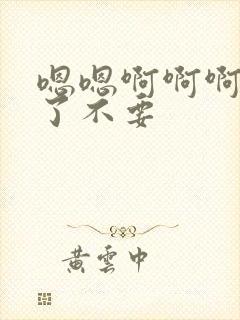 嗯嗯啊啊啊
了不要
黄云中